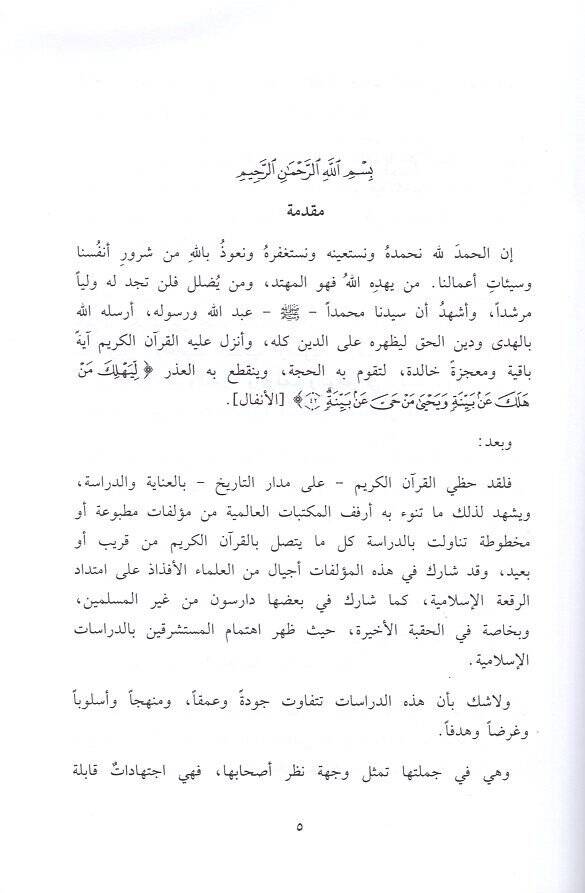 بِسْمِ اللَّهِ الرَّحْمَٰنِ الرَّحِيمِ
مقدمة
إن الحمدَ لله نحمدهُ ونستعينه ونستغفرهُ ونعوذُ باللهِ من شرورِ أنفُسنا
وسيئاتِ أعمالنا. من يهدِهِ اللهُ فهو المهتد، ومن يُضلل فلن تجد له ولياً
مرشداً، وأشهدُ أن سيدنا محمداً – ﷺ – عبد الله ورسوله، أرسله الله
بالهدى ودين الحق ليظهره على الدين كله، وأنزل عليه القرآن الكريم آيةً
باقية ومعجزةً خالدة، لتقوم به الحجة، وينقطع به العذر ﴿ لِيَهْلِكَ مَنْ
هَلَكَ عَنْ بَيِّنَةٍ وَيَحْيَىٰ مَنْ حَيَّ عَنْ بَيِّنَةٍ ۗ ٤٢﴾ [الأنفال].
وبعد:
فلقد حظي القرآن الكريم – على مدار التاريخ – بالعناية والدراسة،
ويشهد لذلك ما تنوء به أرفف المكتبات العالمية من مؤلفات مطبوعة أو
مخطوطة تناولت بالدراسة كل ما يتصل بالقرآن الكريم من قريب أو
بعيد، وقد شارك في هذه المؤلفات أجيال من العلماء الأفذاذ على امتداد
الرقعة الإسلامية، كما شارك في بعضها دارسون من غير المسلمين،
وبخاصة في الحقبة الأخيرة، حيث ظهر اهتمام المستشرقين بالدراسات
الإسلامية.
ولاشك بأن هذه الدراسات تتفاوت جودةً وعمقاً، ومنهجاً وأسلوباً
وغرضاً وهدفاً.
وهي في جملتها تمثل وجهة نظر أصحابها، فهي اجتهاداتٌ قابلة
٥